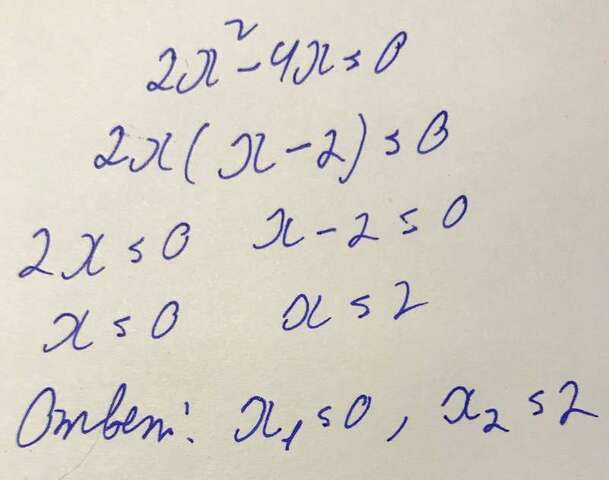 2x² - 4x = 0
2x(x - 2) = 0
2x = 0 x - 2 = 0
x = 0 x = 2
Ответ: x₁ = 0, x₂ = 2